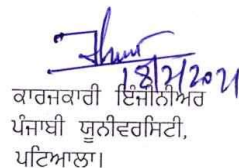 18/2/2021
ਕਾਰਜਕਾਰੀ ਇੰਜੀਨੀਅਰ
ਪੰਜਾਬੀ ਯੂਨੀਵਰਸਿਟੀ,
ਪਟਿਆਲਾ।